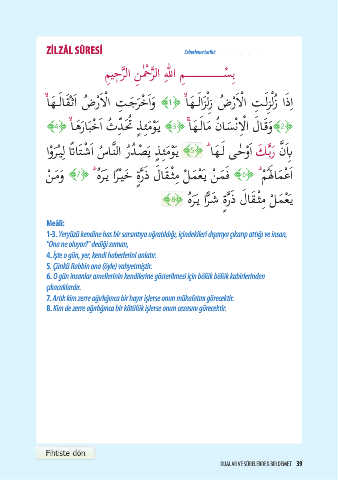 ZİLZÂL SÛRESİ
بِسْــــــــمِ اللهِ الرَّحْمٰنِ الرَّحِيمِ
اِذَا زُلْزِلَتِ الْاَرْضُ زِلْزَالَـهَاۙ ﴿1﴾ وَاَخْرَجَتِ الْاَرْضُ اَثْقَالَـهَاۙ
﴿2﴾ وَقَالَ الْاِنْسَانُ مَا لَـهَاۚ ﴿3﴾ يَوْمَئِذٍ تُحَدِّثُ اَخْبَارَهَاۙ ﴿4﴾
بِاَنَّ رَبَّكَ اَوْحٰى لَـهَاۜ ﴿5﴾ يَوْمَئِذٍ يَصْدُرُ النَّاسُ اَشْتَاتًا لِيُرَوْا
اَعْمَالَهُمْۜ ﴿6﴾ فَمَنْ يَعْمَلْ مِثْقَالَ ذَرَّةٍ خَيْرًا يَرَهُۜ ﴿7﴾ وَمَنْ
يَعْمَلْ مِثْقَالَ ذَرَّةٍ شَرًّا يَرَهُ ﴿8﴾
Meâli:
1-3. Yeryüzü kendine has bir sarsıntıya uğratıldığı, içindekileri dışarıya çıkarıp attığı ve insan,
"Ona ne oluyor?" dediği zaman,
4. İşte o gün, yer, kendi haberlerini anlatır.
5. Çünkü Rabbin ona (öyle) vahyetmiştir.
6. O gün insanlar amellerinin kendilerine gösterilmesi için bölük bölük kabirlerinden
çıkacaklardır.
7. Artık kim zerre ağırlığınca bir hayır işlerse onun mükafatını görecektir.
8. Kim de zerre ağırlığınca bir kötülük işlerse onun cezasını görecektir.
Fihriste dön
39